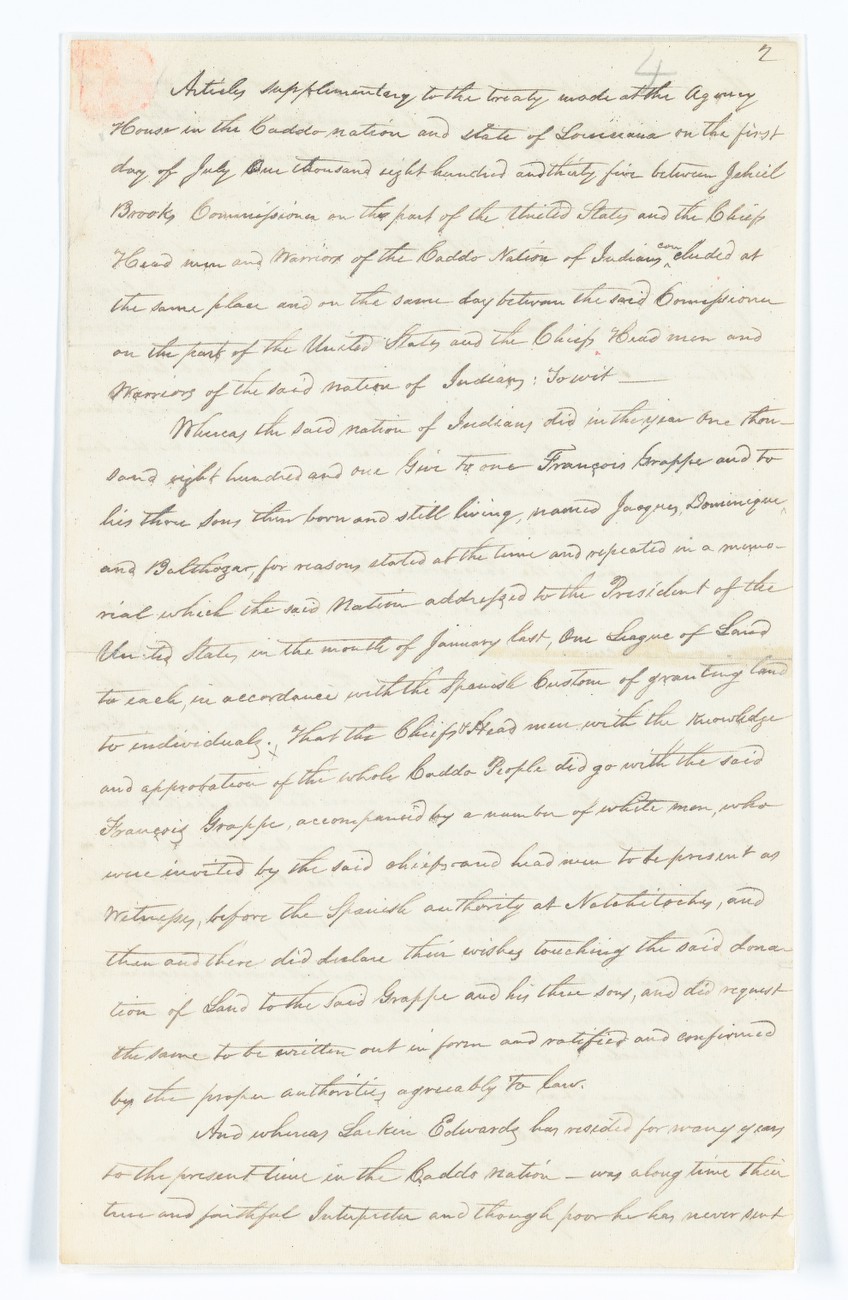 2
4
Articles supplimentary to the treaty made at the Agency
House in the Caddo nation and state of Louisiana on the first
day of July One thousand eight hundred and thirty five between Jehiel
Brooks Commissioner on the part of the United States and the Chiefs
Head men and Warriors of the Caddo Nation of Indians concluded at
the same place and on the same day between the said Comissioner
on the part of the United States and the Chiefs Head men and
Warriors of the said nation of Indians; To wit —
Whereas the said nation of Indians did in the year One thou-
sand eight hundred and one Give to one François Grappe and to
his three sons then born and still living, named Jaques, Dominique,
and Balthazar, for reasons stated at the time and repeated in a memo-
rial which the said Nation addressed to the President of the
United States in the month of January last, One League of Land
to each, in accordance with the Spanish Custom of granting land
to individuals. That the Chiefs & Head men with the knowledge
and approbation of the whole Caddo People did go with the said
François Grappe, accompanied by a number of white men, who
were invited by the said chiefs and head men to be present as
Witnesses, before the Spanish authority at Natchitoches, and
then and there did declare their wishes touching the said dona-
tion of Land to the said Grappe and his three sons, and did request
the same to be written out in form and ratified and confirmed
by the proper authorities agreeably to law.
And whereas Larkin Edwards has resided for many years
to the present time in the Caddo nation — was a long time their
true and faithful Interpreter and though poor he has never sent